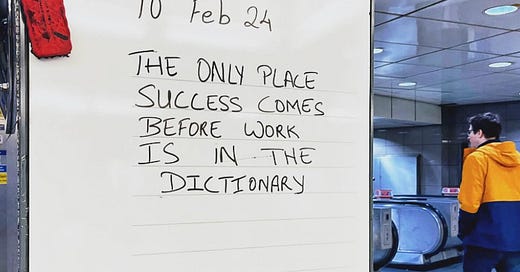 10 Feb 24
THE ONLY PLACE
SUCCESS COMES
BEFORE WORK
IS IN THE
DICTIONARY